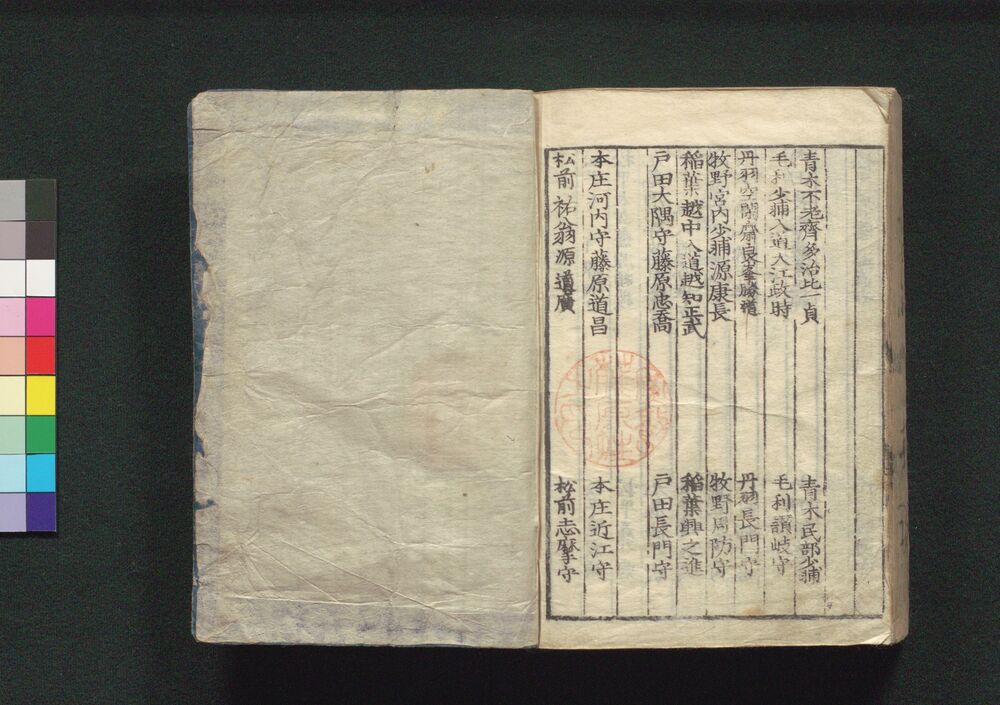 青木不老齊多治比一貞 青木民部少輔
毛利少輔入道大江政時 毛利讃岐守
丹羽空閑齋良峯勝道 丹羽長門守
牧野宮内少輔源康長 牧野周防守
稲葉越中入道越知正武 稲葉興之進
戸田大隅守藤原忠喬 戸田長門守
本庄河内守藤原道昌 本庄近江守
松前祐翁源道廣 松前志摩守